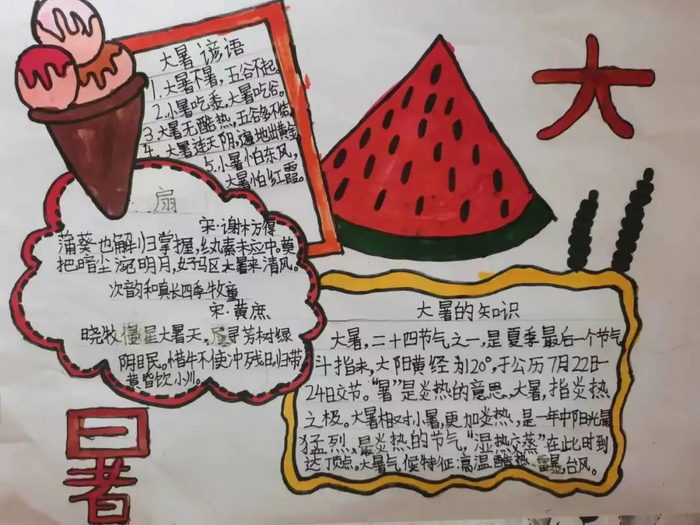 大
暑
大暑谚语
1.大暑不暑,五谷不起。
2.小暑吃黍,大暑吃谷。
3.大暑无酷热,五谷多不结。
4.大暑连天阴,遍地出黄金
5.小暑怕东风,
大暑怕红霞。
扇
宋·谢枋得
蒲葵也解归掌握,纨素未应中
把暗尘浼明月,好驱大暑来清风。
次韵和真长四季牧童
宋·黄庶
晓牧 星大暑天, 寻芳树绿
阴眠。惜牛不使冲残日,归带
黄昏饮小川。
大暑的知识
大暑,二十四节气之一,是夏季最后一个节气
斗指未,太阳黄经为120°,于公历7月22日-
24日交节。“暑”是炎热的意思,大暑,指炎热
之极。大暑相对小暑,更加炎热,是一年中阳光最
猛烈、最炎热的节气,“湿热交蒸”在此时到
达顶点。大暑气候特征:高温酷热、雷暴,台风。